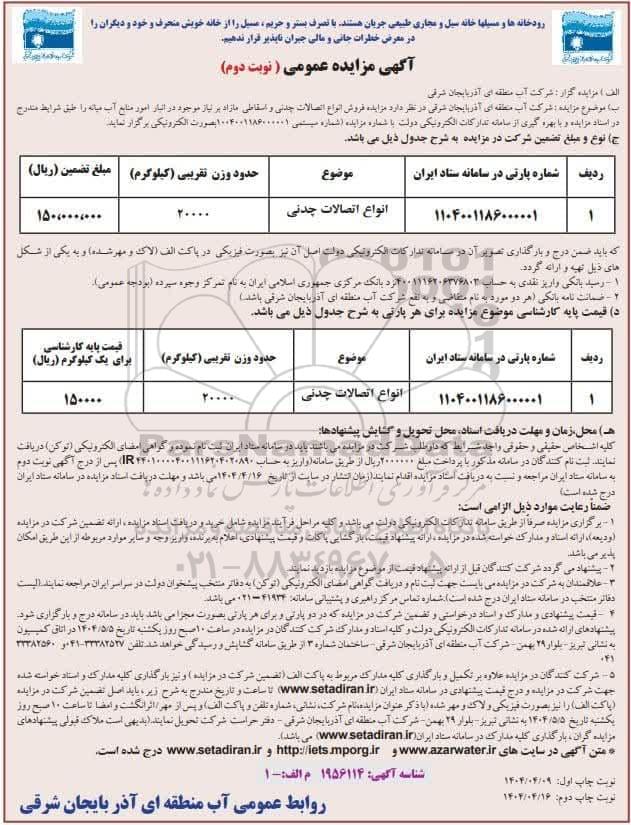 رودخانه ها و مسیلها خانه سیل و مجاری طبیعی جریان هستند. با تصرف بستر و حریم ، مسیل را از خانه خویش منحرف و خود و دیگران را
در معرض خطرات جانی و مالی جبران ناپذیر قرار ندهیم.
آگهی مزایده عمومی ( نوبت دوم)
الف ) مزایده گزار : شرکت آب منطقه ای آذربایجان شرقی
ب) موضوع مزایده : شرکت آب منطقه ای آذربایجان شرقی در نظر دارد مزایده فروش انواع اتصالات چدنی و اسقاطی مازاد بر نیاز موجود در انبار امور منابع آب میانه را طبق شرایط مندرج
در اسناد مزایده و با بهره گیری از سامانه تدارکات الکترونیکی دولت با شماره مزایده (شماره سیستمی ۱۰۰۴۰۰۱۱۸۶۰۰۰۰۰۱)بصورت الکترونیکی برگزار نماید.
ج) نوع و مبلغ تضمین شرکت در مزایده به شرح جدول ذیل می باشد.
ردیف شماره پارتی در سامانه ستاد ایران موضوع حدود وزن تقریبی (کیلوگرم) مبلغ تضمین (ریال)
۱ ۱۱۰۴۰۰۱۱۸۶۰۰۰۰۰۱ انواع اتصالات چدنی ۲۰۰۰۰ ۱۵۰,۰۰۰,۰۰۰
که باید ضمن درج و بارگذاری تصویر آن در سامانه تدارکات الکترونیکی دولت اصل آن نیز بصورت فیزیکی در پاکت الف (لاک و مهرشده) و به یکی از شکل های
ذیل تهیه و ارائه گردد.
۱ - رسید بانکی واریز نقدی به حساب ۴۰۰۱۱۱۶۲۰۶۳۷۶۸۰۲نزد بانک مرکزی جمهوری اسلامی ایران به نام تمرکز وجوه سپرده (بودجه عمومی).
۲ - ضمانت نامه بانکی (هر دو مورد به نام متقاضی و به نفع شرکت آب منطقه ای آذربایجان شرقی باشد.)
د) قیمت پایه کارشناسی موضوع مزایده برای هر پارتی به شرح جدول ذیل می باشد.
ردیف شماره پارتی در سامانه ستاد ایران موضوع حدود وزن تقریبی (کیلوگرم) قیمت پایه کارشناسی برای یک کیلوگرم (ریال)
۱ ۱۱۰۴۰۰۱۱۸۶۰۰۰۰۰۱ انواع اتصالات چدنی ۲۰۰۰۰ ۱۵۰۰۰۰
هـ ) محل،زمان و مهلت دریافت اسناد، محل تحویل و گشایش پیشنهادها:
کلیه اشخاص حقیقی و حقوقی واجد شرایط که داوطلب شرکت در مزایده می باشند باید در سامانه ستاد ایران ثبت نام نموده و گواهی امضای الکترونیکی (توکن) دریافت
نمایند. ثبت نام کنندگان در سامانه مذکور با پرداخت مبلغ ۲۰۰۰۰۰۰ریال از طریق سامانه(واریز به حساب IR۴۴۰۱۰۰۰۰۴۰۰۱۱۱۶۲۰۴۰۲۰۸۹۰) پس از درج آگهی نوبت دوم
به سامانه ستاد ایران مراجعه و نسبت به دریافت اسناد مزایده اقدام نمایند(زمان انتشار در سایت از تاریخ ۱۴۰۴/۴/۱۶می باشد و مهلت دریافت اسناد مزایده در سامانه ستاد ایران
درج شده است)
ضمناً رعایت موارد ذیل الزامی است:
۱ - برگزاری مزایده صرفا از طریق سامانه تدارکات الکترونیکی دولت می باشد و کلیه مراحل فرآیند مزایده شامل خرید و دریافت اسناد مزایده ، ارائه تضمین شرکت در مزایده
(ودیعه)، ارائه اسناد و مدارک خواسته شده در مزایده ، ارائه پیشنهاد قیمت، بازگشایی پاکات و قیمت پیشنهادی، اعلام به برنده، واریز وجه و سایر موارد مربوطه از این طریق امکان
پذیر می باشد.
۲ - پیشنهاد می گردد شرکت کنندگان قبل از ارائه پیشنهاد قیمت از موضوع مزایده بازدید نمایند.
۳ - علاقمندان به شرکت در مزایده می بایست جهت ثبت نام و دریافت گواهی امضای الکترونیکی (توکن) به دفاتر منتخب پیشخوان دولت در سراسر ایران مراجعه نمایند.(لیست
دفاتر منتخب در سامانه ستاد ایران درج شده است).شماره تماس مرکز راهبری و پشتیبانی سامانه: ۴۱۹۳۴-۰۲۱ می باشد.
۴ - قیمت پیشنهادی و مدارک و اسناد درخواستی و تضمین شرکت در مزایده که در دو پارتی و برای هر پارتی بصورت مجزا می باشد باید در سامانه درج و بارگزاری شود.
پیشنهادهای ارائه شده در سامانه تدارکات الکترونیکی دولت و کلیه اسناد و مدارک شرکت کنندگان در مزایده در ساعت ۱۰صبح روز یکشنبه تاریخ ۱۴۰۴/۵/۵ در اتاق کمیسیون
به نشانی تبریز- بلوار ۲۹ بهمن- شرکت آب منطقه ای آذربایجان شرقی- ساختمان شماره ۳ از طریق سامانه گشایش و رسیدگی خواهد شد.تلفن ۳۳۳۸۲۵۲۷-۰۴۱و ۳۳۳۸۲۵۶۰
۰۴۱
۵ - شرکت کنندگان در مزایده علاوه بر تکمیل و بارگذاری کلیه مدارک مربوط به پاکت الف (تضمین شرکت در مزایده ) و نیز بارگذاری کلیه مدارک و اسناد خواسته شده
جهت شرکت در مزایده و درج قیمت پیشنهادی در سامانه ستاد ایران (www.setadiran.ir) تا ساعت و تاریخ مندرج به شرح زیر ، باید اصل تضمین شرکت در مزایده
(پاکت الف) را نیز بصورت فیزیکی و لاک و مهر شده (با ذکر عنوان مزایده،نام شرکت، نشانی، شماره تلفن و پاکت الف) و پس از مهر/اثرانگشت و امضا تا ساعت ۱۰ صبح روز
یکشنبه تاریخ ۱۴۰۴/۵/۵ به نشانی تبریز- بلوار ۲۹ بهمن- شرکت آب منطقه ای آذربایجان شرقی - دفتر حراست شرکت تحویل نمایند.(بدیهی است ملاک قبولی پیشنهادهای
مزایده گران ، بارگذاری کلیه مدارک در سامانه ستاد ایران(www.setadiran.ir) می باشد).
* متن آگهی در سایت های www.azarwater.ir و http://iets.mporg.ir و www.setadiran.ir درج شده است.
شناسه آگهی: ۱۹۵۶۱۱۴ م الف:- ۱
نوبت چاپ اول: ۱۴۰۴/۰۴/۰۹
نوبت چاپ دوم: ۱۴۰۴/۰۴/۱۶
روابط عمومی آب منطقه ای آذربایجان شرقی
ParsNamadData
۰۲۱-۸۸۳۴۹۶۷۰-۵